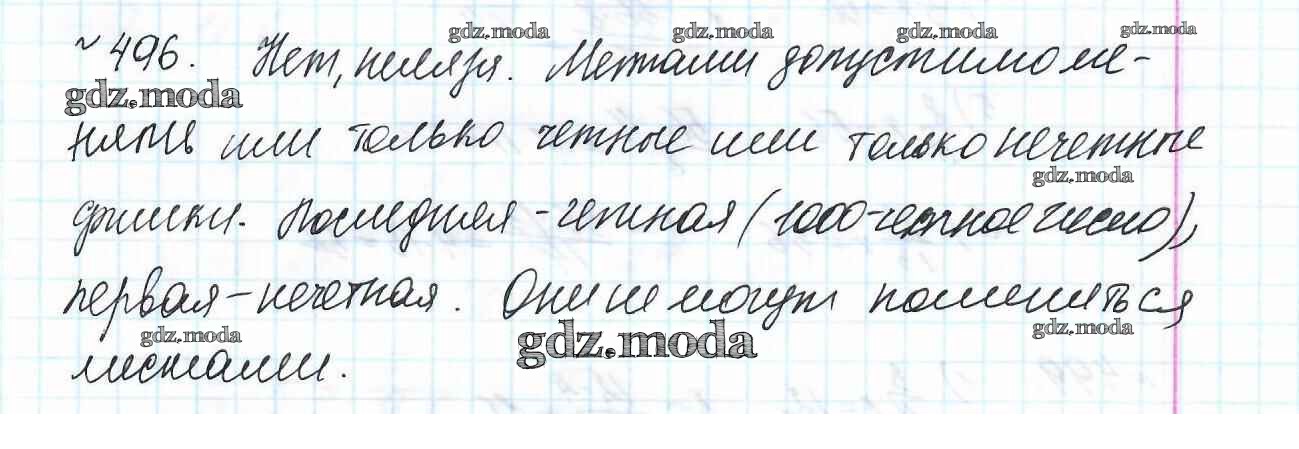 gdz.moda gdz.moda gdz.moda gdz.moda
№ 496. Нет, нельзя. Местами допустимо ме-
gdz.moda
нять или только четные или только нечетные
gdz.moda
фишки. Последняя - четная (1000-четное число),
первая - нечетная. Они не могут поменяться
gdz.moda gdz.moda gdz.moda
местами.
gdz.moda gdz.moda gdz.moda gdz.moda